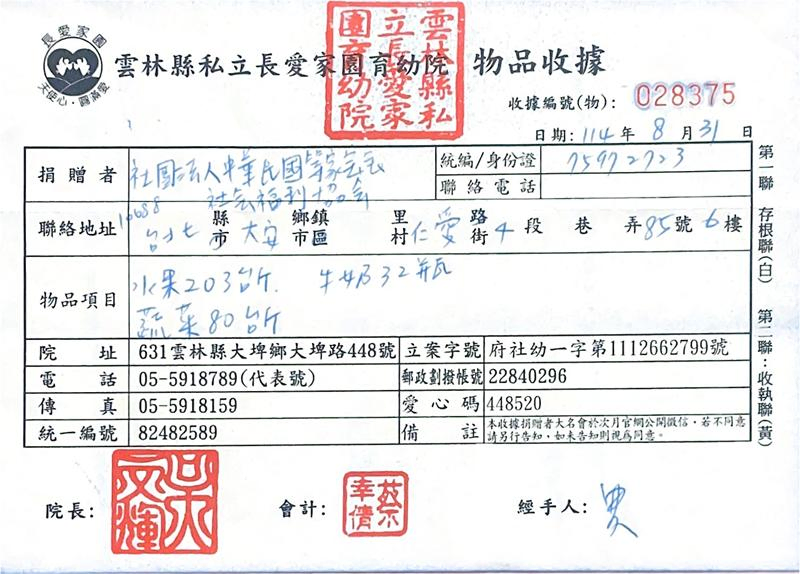 長愛家園
天使心・圓滿愛
雲林縣私立長愛家園育幼院 物品收據
雲林縣私立長愛家園育幼院
收據編號(物): 028375
日期: 114 年 8 月 31 日
捐贈者 社團法人中華民國等家寶寶社會福利協會
統編/身份證 75972723
聯絡電話
聯絡地址 10688 台北 縣市 大安 鄉鎮市區 里村 仁愛 路街 4 段 巷 弄 85 號 6 樓
物品項目 水果203台斤. 牛奶32瓶
蔬菜80台斤
院址 631雲林縣大埤鄉大埤路448號 立案字號 府社幼一字第1112662799號
電話 05-5918789(代表號) 郵政劃撥帳號 22840296
傳真 05-5918159 愛心碼 448520
統一編號 82482589 備註 本收據捐贈者大名會於次月官網公開徵信，若不同意
請另行告知，如未告知則視為同意。
第一聯 存根聯(白) 第二聯:收執聯(黃)
院長: 會計: 蔡幸倩 經手人: